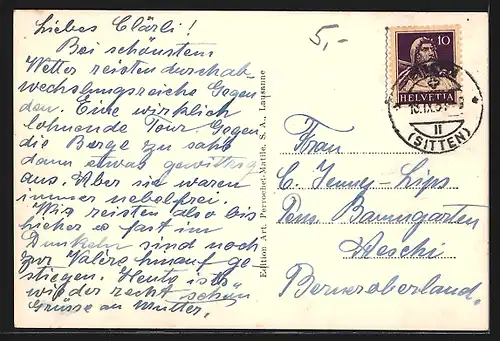 Liebes Clärli!
Bei schönstem
Wetter reisten durch ab
wechslungsreiche Gegen
den. Eine wirklich
lohnende Tour. Gegen
die Berge zu sah's
dann etwas gewittrig
aus. Aber sie waren
immer nebelfrei.
Wir reisten also bis
hieher & fast im
Dunkeln sind noch
zur Valère hinauf ge
stiegen. Heute ist's
wieder recht schön
Grüsse an Mutter.
5,-
Edition Art. Perrochet-Matile, S. A., Lausanne
10
HELVETIA
II
(SITTEN)
Frau
C. Jenny-Lips
Pens. Baumgarten
Berneroberland.